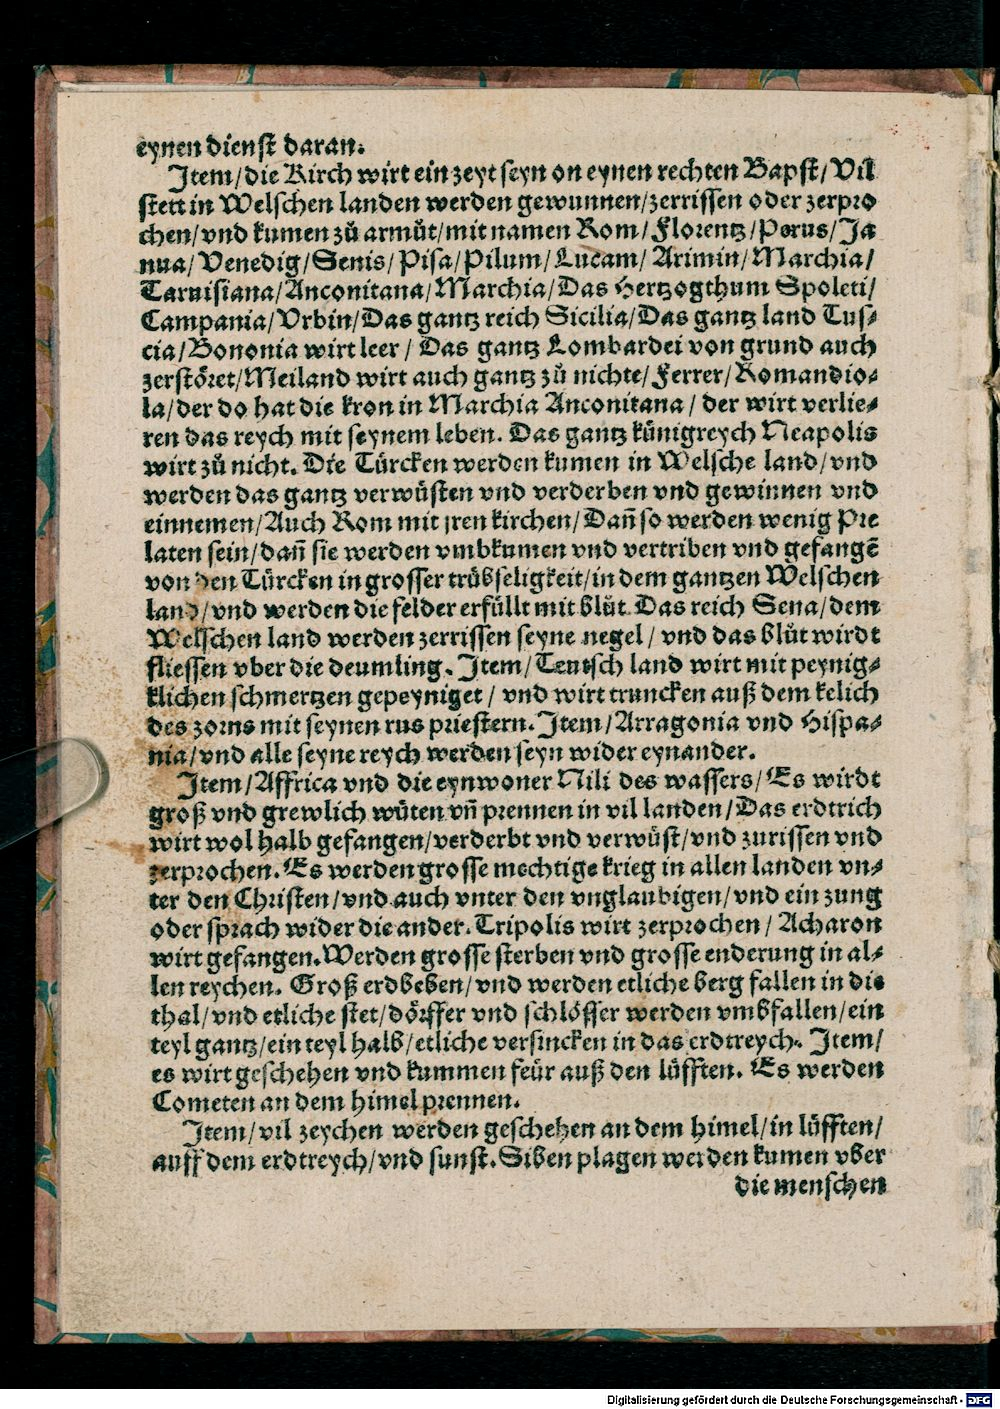 eynen dienst daran.
Item/die Kirch wirt ein zeyt seyn on eynen rechten Bapst/Vil
stett in Welschen landen werden gewunnen/zerrissen oder zerpro
chen/vnd kumen zů armůt/mit namen Rom/Florentz/Perus/Ja
nua/Venedig/Senis/Pisa/Pilum/Lucam/Arimin/Marchia/
Taruisiana/Anconitana/Marchia/Das Hertzogthum Spoleti/
Campania/Vrbin/Das gantz reich Sicilia/Das gantz land Tus⸗
cia/Bononia wirt leer/Das gantz Lombardei von grund auch
zerstöret/Meiland wirt auch gantz zů nichte/Ferrer/Romandio⸗
la/der do hat die kron in Marchia Anconitana/der wirt verlie⸗
ren das reych mit seynem leben. Das gantz künigreych Neapolis
wirt zů nicht. Die Türcken werden kumen in Welsche land/vnd
werden das gantz verwüsten vnd verderben vnd gewinnen vnd
einnemen/Auch Rom mit jren kirchen/Dañ so werden wenig Pre
laten sein/dañ sie werden vmbkumen vnd vertriben vnd gefangē
von den Türcken in grosser trübseligkeit/in dem gantzen Welschen
land/vnd werden die felder erfüllt mit blůt. Das reich Sena/dem
Welschen land werden zerrissen seyne negel/vnd das blůt wirdt
fliessen vber die deumling. Item/Teutsch land wirt mit peynig⸗
klichen schmertzen gepeyniget/vnd wirt truncken auß dem kelich
des zorns mit seynen rus priestern. Item/Arragonia vnd Hispa⸗
nia/vnd alle seyne reych werden seyn wider eynander.
Item/Affrica vnd die eynwoner Nili des wassers/Es wirdt
groß vnd grewlich wüten vñ prennen in vil landen/Das erdtrich
wirt wol halb gefangen/verderbt vnd verwüst/vnd zurissen vnd
zerprochen. Es werden grosse mechtige krieg in allen landen vn⸗
ter den Christen/vnd auch vnter den vnglaubigen/vnd ein zung
oder sprach wider die ander. Tripolis wirt zerprochen/Acharon
wirt gefangen. Werden grosse sterben vnd grosse enderung in al⸗
len reychen. Groß erdbeben/vnd werden etliche berg fallen in die
thal/vnd etliche stet/dörffer vnd schlösser werden vmbfallen/ein
teyl gantz/ein teyl halb/etliche versincken in das erdtreych. Item/
es wirt geschehen vnd kummen feür auß den lüfften. Es werden
Cometen an dem himel prennen.
Item/vil zeychen werden geschehen an dem himel/in lüfften/
auff dem erdtreych/vnd sunst. Siben plagen werden kumen vber
die menschen
Digitalisierung gefördert durch die Deutsche Forschungsgemeinschaft - DFG